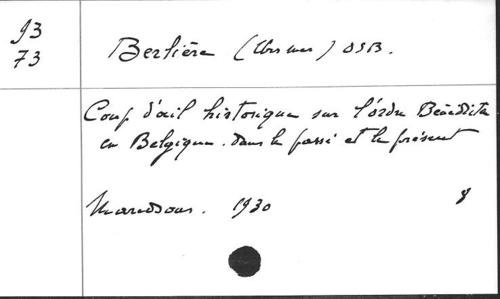 93
73
Berlière (Ursmer) OSB.
Coup d'œil historique sur l'ordre Bénédictin
en Belgique dans le passé et le présent
Maredsous. 1930 8